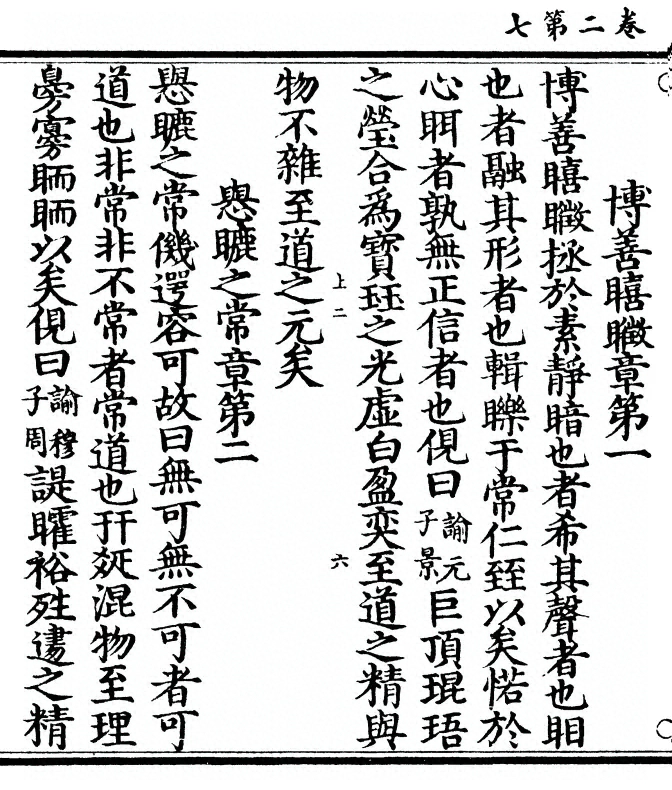 卷二第七
博善瞦章第一
博善瞦拯於素靜暗也者希其聲者也
也者融其形者也輯于常仁臸以矣惝於
心眲者孰無正信者也俔曰諭元子景巨頂琨珸
之瑩合為寶珏之光虛白盈奕至道之精與
上二
六
物不雜至道之元矣
之常章第二
之常容可故曰無可無不可者可
道也非常非不常者常道也混物至理
以矣俔曰諭穆子周諟矅裕之精